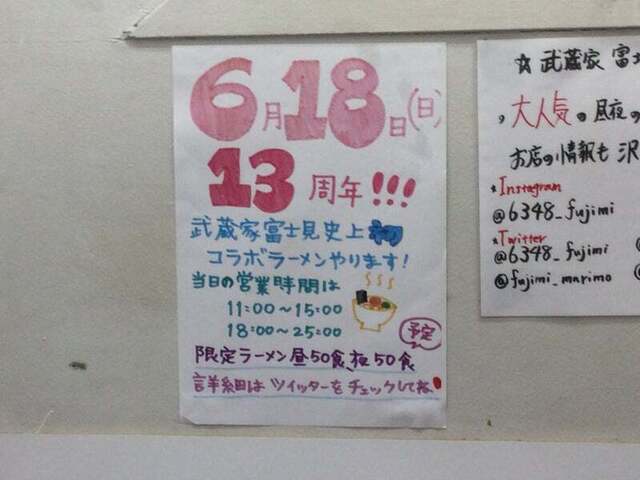 6月18日(日)
13周年!!!
武蔵家富士見史上初
コラボラーメンやります!
当日の営業時間は
11:00〜15:00
18:00〜25:00
予定
限定ラーメン昼50食、夜50食
詳細はツイッターをチェックしてね
☆武蔵家富
大人気の昼夜の
お店の情報も沢
*Instagram
@6348_fujimi
*Twitter
@6348_fujimi
@fujimi_marimo